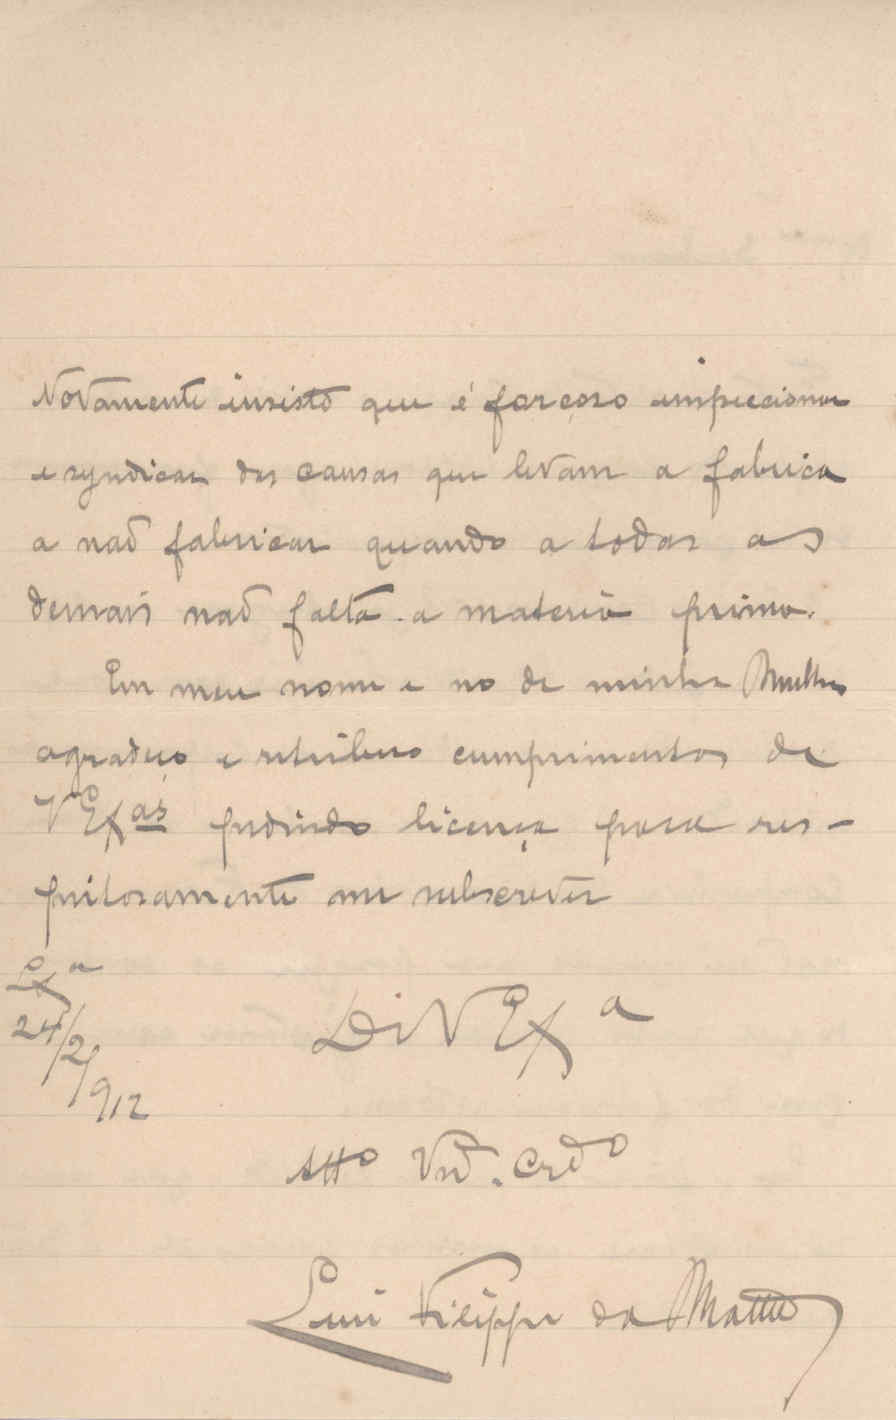 Novamente insisto que é forçoso inspeccionar
e syndicar das causas que levam a fabrica
a naõ fabricar quando a todas as
demais naõ falta a materia prima.
Em meu nome e no de minha Mulher
agradeço e retribuo cumprimentos de
V Exas pedindo licença para res-
peitosamente me subscrever
Lxa
24/2/912
De V Exa
Atto Vnr. Crdo
Luiz Filippe da Matta